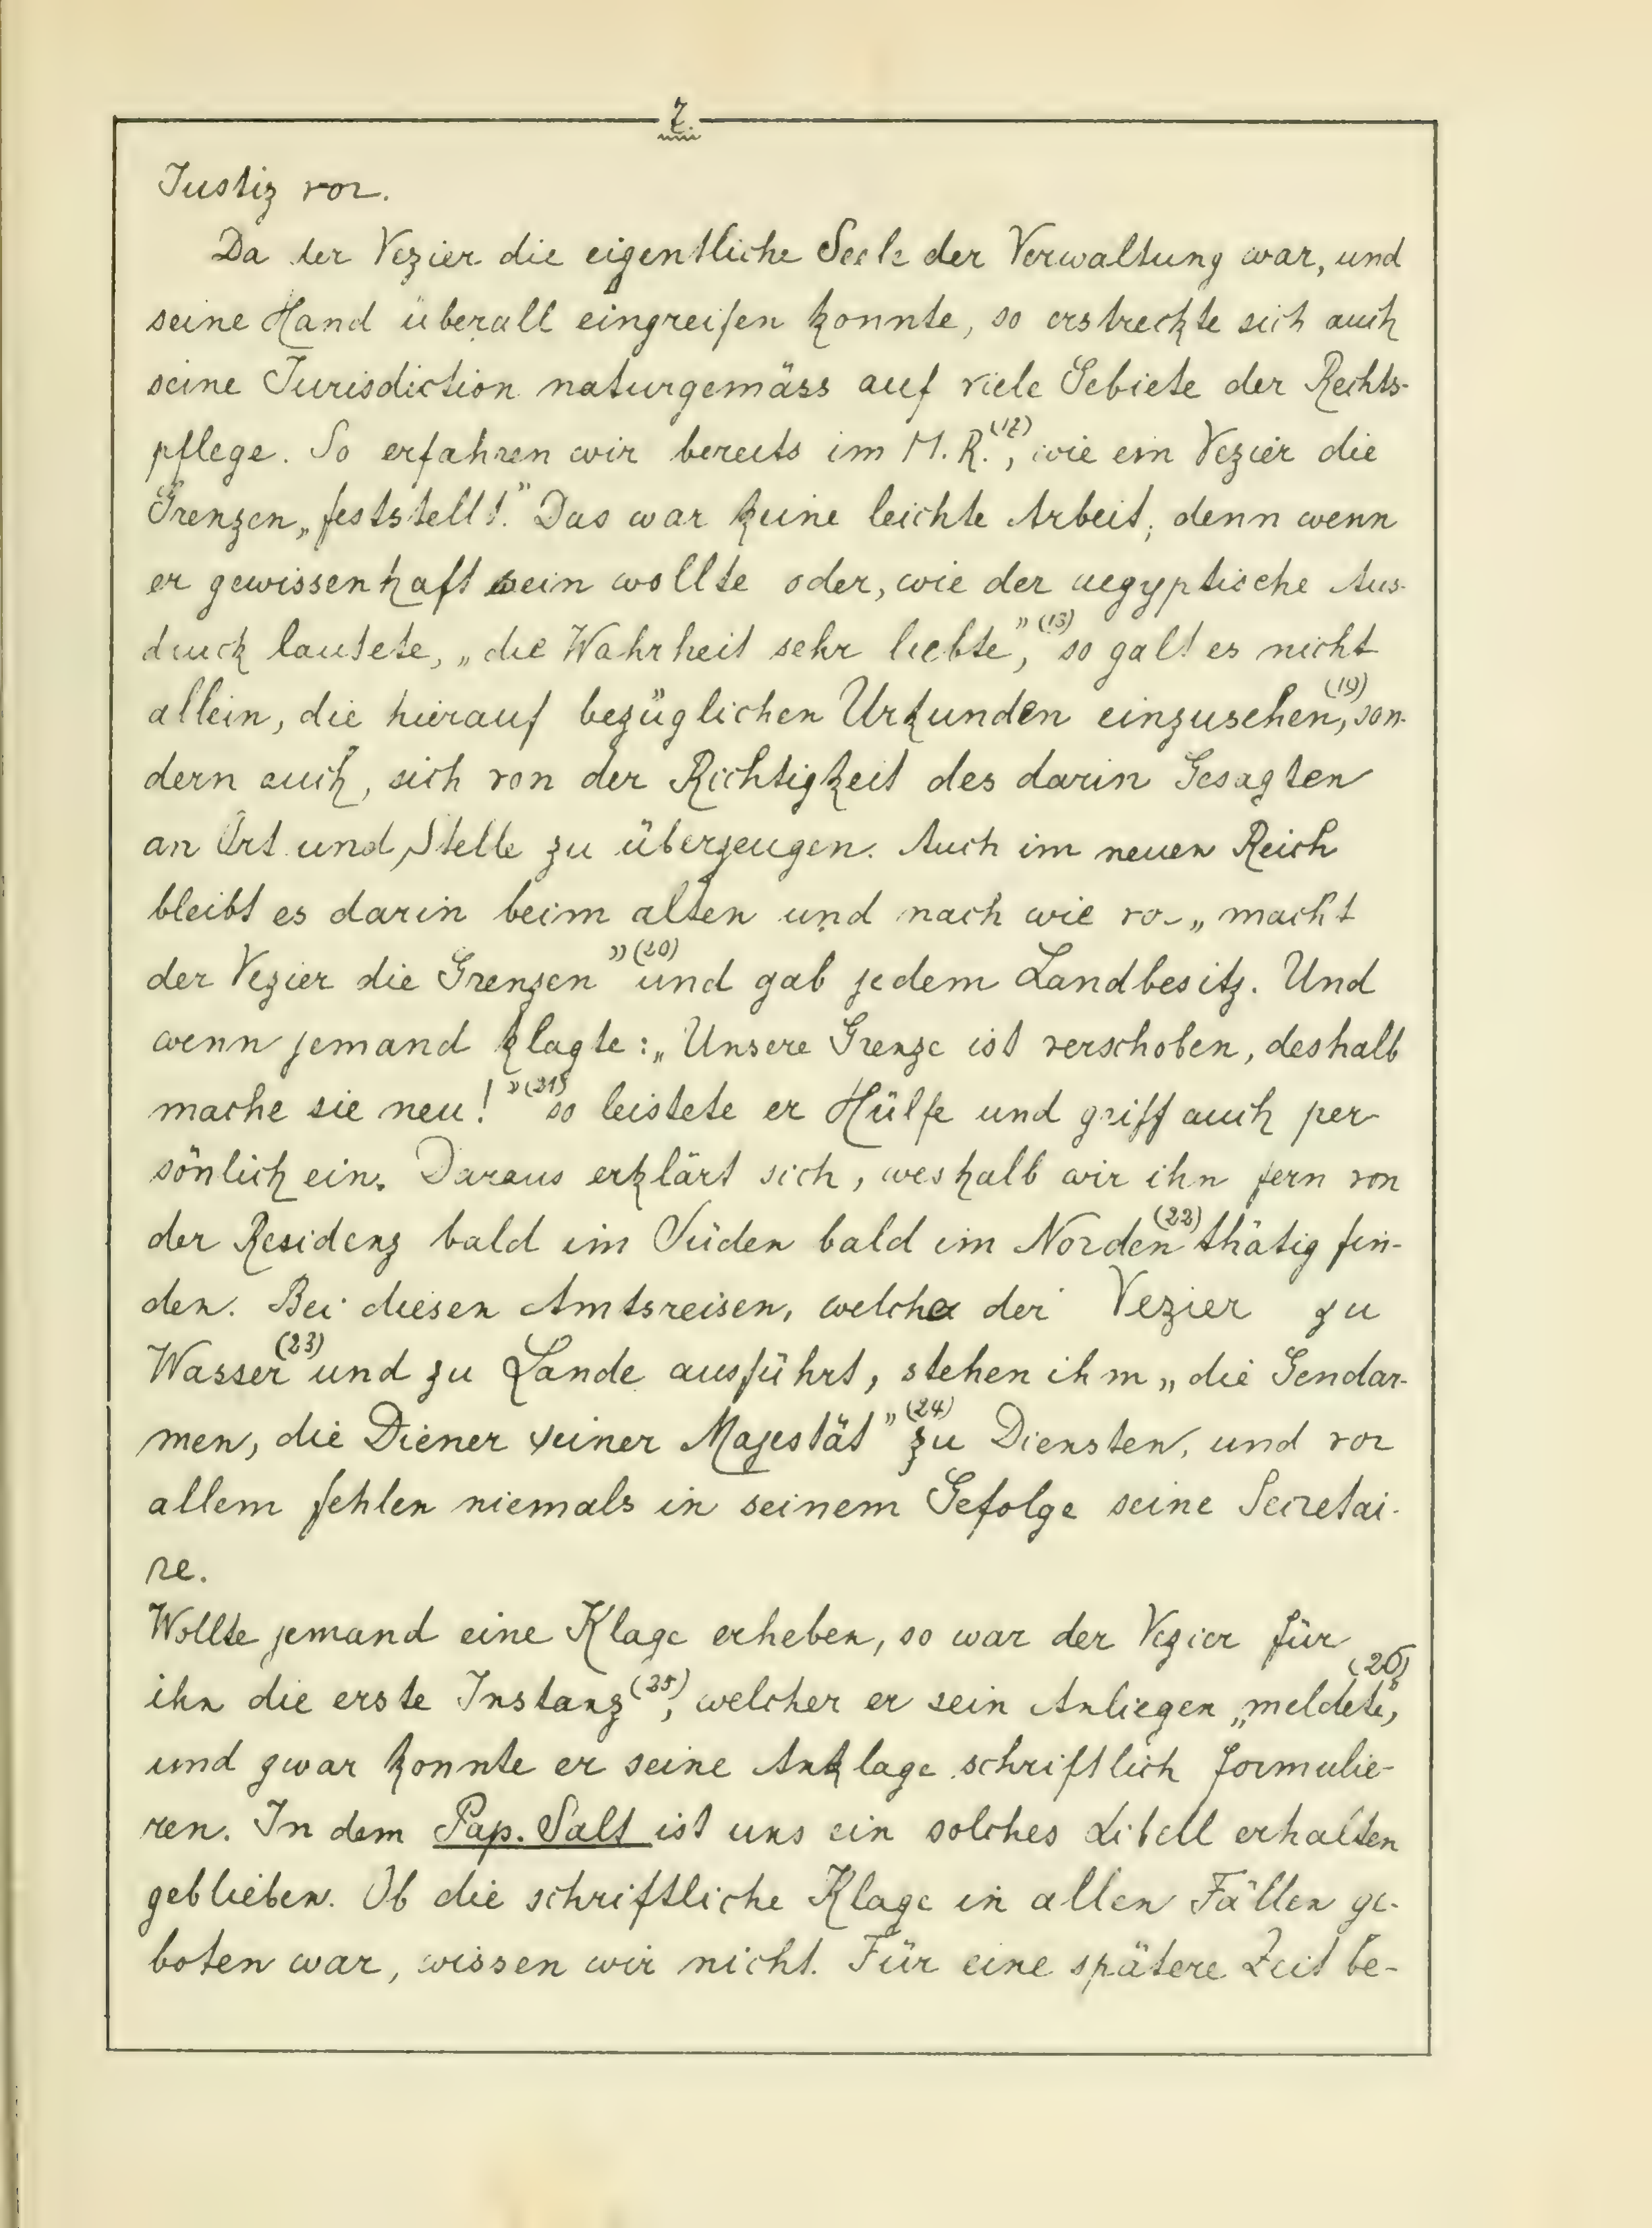 7.
Justiz vor.
Da der Vezier die eigentliche Seele der Verwaltung war, und
seine Hand überall eingreifen konnte, so erstreckte sich auch
seine Jurisdiction naturgemäss auf viele Gebiete der Rechts-
pflege. So erfahren wir bereits im M. R.(17), wie ein Vezier die
Grenzen „feststellt." Das war keine leichte Arbeit, denn wenn
er gewissenhaft sein wollte oder, wie der aegyptische Aus-
druck lautete, „die Wahrheit sehr liebte",(18) so galt es nicht
allein, die hierauf bezüglichen Urkunden einzusehen,(19) son-
dern auch, sich von der Richtigkeit des darin Gesagten
an Ort und Stelle zu überzeugen. Auch im neuen Reich
bleibt es darin beim alten und nach wie vor „macht
der Vezier die Grenzen"(20) und gab jedem Landbesitz. Und
wenn jemand klagte: „Unsere Grenze ist verschoben, deshalb
mache sie neu!"(21) so leistete er Hülfe und griff auch per-
sönlich ein. Daraus erklärt sich, weshalb wir ihn fern von
der Residenz bald im Süden bald im Norden(22) thätig fin-
den. Bei diesen Amtsreisen, welche der Vezier zu
Wasser(23) und zu Lande ausführt, stehen ihm „die Gendar-
men, die Diener seiner Majestät"(24) zu Diensten, und vor
allem fehlen niemals in seinem Gefolge seine Secretai-
re.
Wollte jemand eine Klage erheben, so war der Vezier für
ihn die erste Instanz(25), welcher er sein Anliegen „meldete",(26)
und zwar konnte er seine Anklage schriftlich formulie-
ren. In dem Pap. Salt ist uns ein solches Libell erhalten
geblieben. Ob die schriftliche Klage in allen Fällen ge-
boten war, wissen wir nicht. Für eine spätere Zeit be-